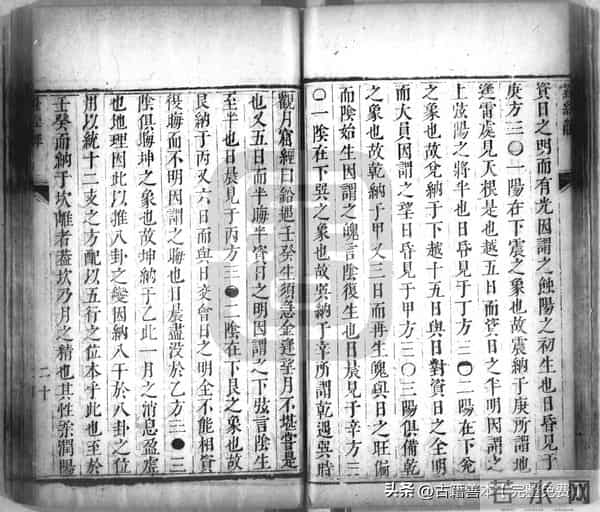 資日之明而有光因謂之陽之初生也日昏見于
庚方三○一陽在下震之象也故震納于庚所謂地
逢雷處見天根是也越五日而資日之半明因謂之
上弦陽之將半也日昏見于丁方三○二陽在下兌
之象也故兌納于丁越十五日與日對資日之全明
而大員因謂之望日昏見于甲方三○三陽俱備乾
之象也故乾納于甲又三日而再生魄與日之旺偏
而陰始生因謂之魄言陰復生也日晨見于辛方三
○一陰在下巽之象也故巽納于辛所謂乾遇巽時
觀月窟經曰鉛遇壬癸生須急金逢望月不堪嘗是
也又五日而半晦半資日之明因謂之下弦言陰生
至半也日晨見于丙方三●二陰在下艮之象也故
艮納于丙又六日而與日交會日之明全不能相資
復晦而不明因謂之晦也日晨盡沒於乙方三●三
陰俱晦坤之象也故坤納于乙此一月之消息盈虛
也地理因此以推八卦之變因納八干於八卦之位
用以統十二支之方配以五行之位本乎此也至於
壬癸而納于坎離者蓋坎乃月之精也其性柔潤陽
二十
头条 @古籍善本十完整免费